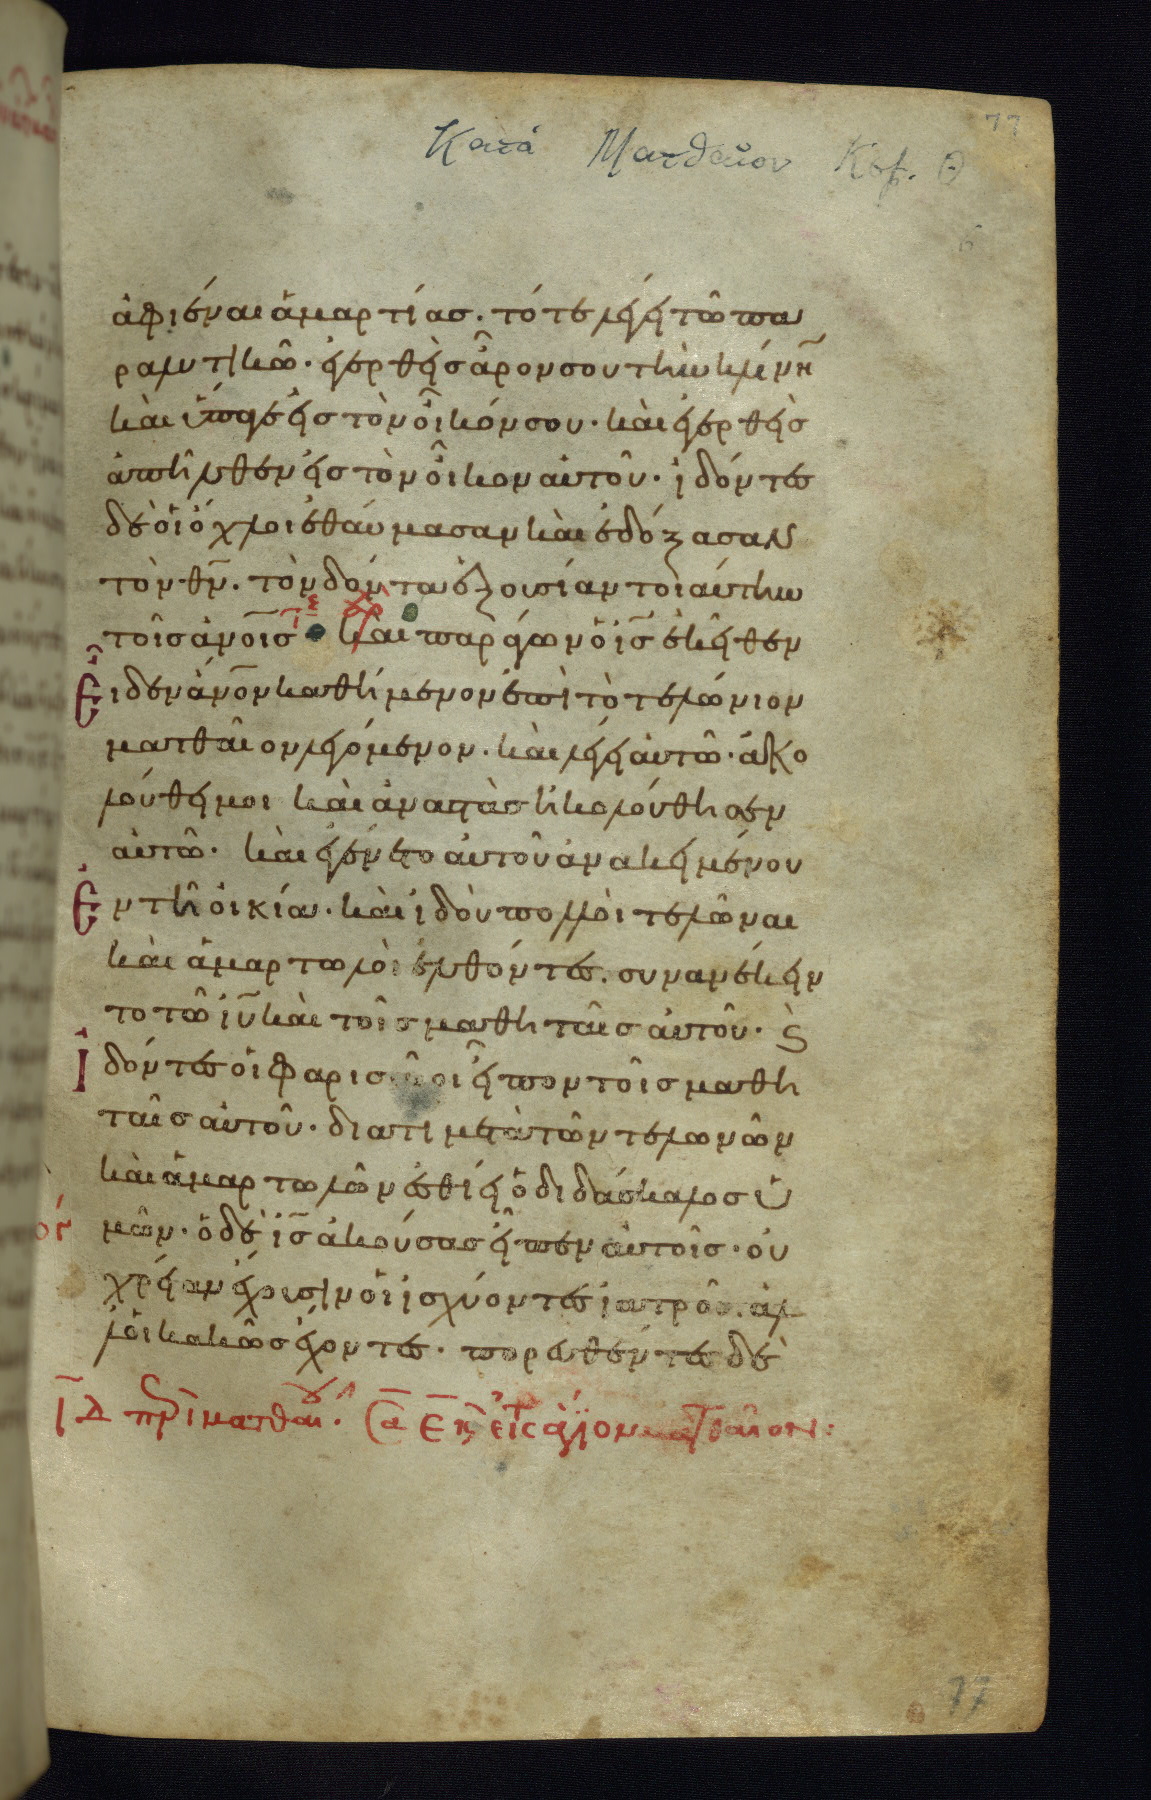 77
Κατὰ Ματθαῖον Κεφ. Θ
6
ἀφιέναι ἁμαρτίας. τότε λέγει τῶ πα
ραλυτικῶ. ἐγερθεὶς ἆρόν σου τὴν κλίνη̅
καὶ ὕπαγε εἰς τὸν οἶκόν σου. καὶ ἐγερθεὶς
ἀπῆλθεν εἰς τὸν οἶκον αὐτοῦ. ἰδόντες
δὲ οἱ ὄχλοι ἐθαύμασαν καὶ ἐδόξασαν
τὸν θν̅. τὸν δόντα ἐξουσίαν τοιαύτην
τοῖς ἀνοις̅ καὶ παράγων ὁ ις̅ ἐκεῖθεν
εἶδεν ἄνον̅ καθήμενον ἐπὶ τὸ τελώνιον
ματθαῖον λεγόμενον. καὶ λέγει αὐτῶ. ἀκο
λούθει μοι καὶ ἀναστὰς ἠκολούθησεν
αὐτῶ. καὶ ἐγένετο αὐτοῦ ἀνακειμένου
ἐν τῆ οἰκία. καὶ ἰδοὺ πολλοὶ τελῶναι
καὶ ἁμαρτωλοὶ ἐλθόντες. συνανέκειν
το τῶ ιυ̅ καὶ τοῖς μαθηταῖς αὐτοῦ. ϛ
ἰδόντες οἱ φαρισαῖοι εἶπον τοῖς μαθη
ταῖς αὐτοῦ. διατί μετὰ τῶν τελωνῶν
καὶ ἁμαρτωλῶν ἐσθίει ὁ διδάσκαλος ὑ
μῶν. ὁ δὲ ις̅ ἀκούσας εἶπεν αὐτοῖς. οὐ
χρείαν ἔχουσιν οἱ ἰσχύοντες ἰατροῦ. ἀλ
λ οἱ κακῶς ἔχοντες. πορευθέντες δὲ
ΙΔ περὶ ματθαίου.
77